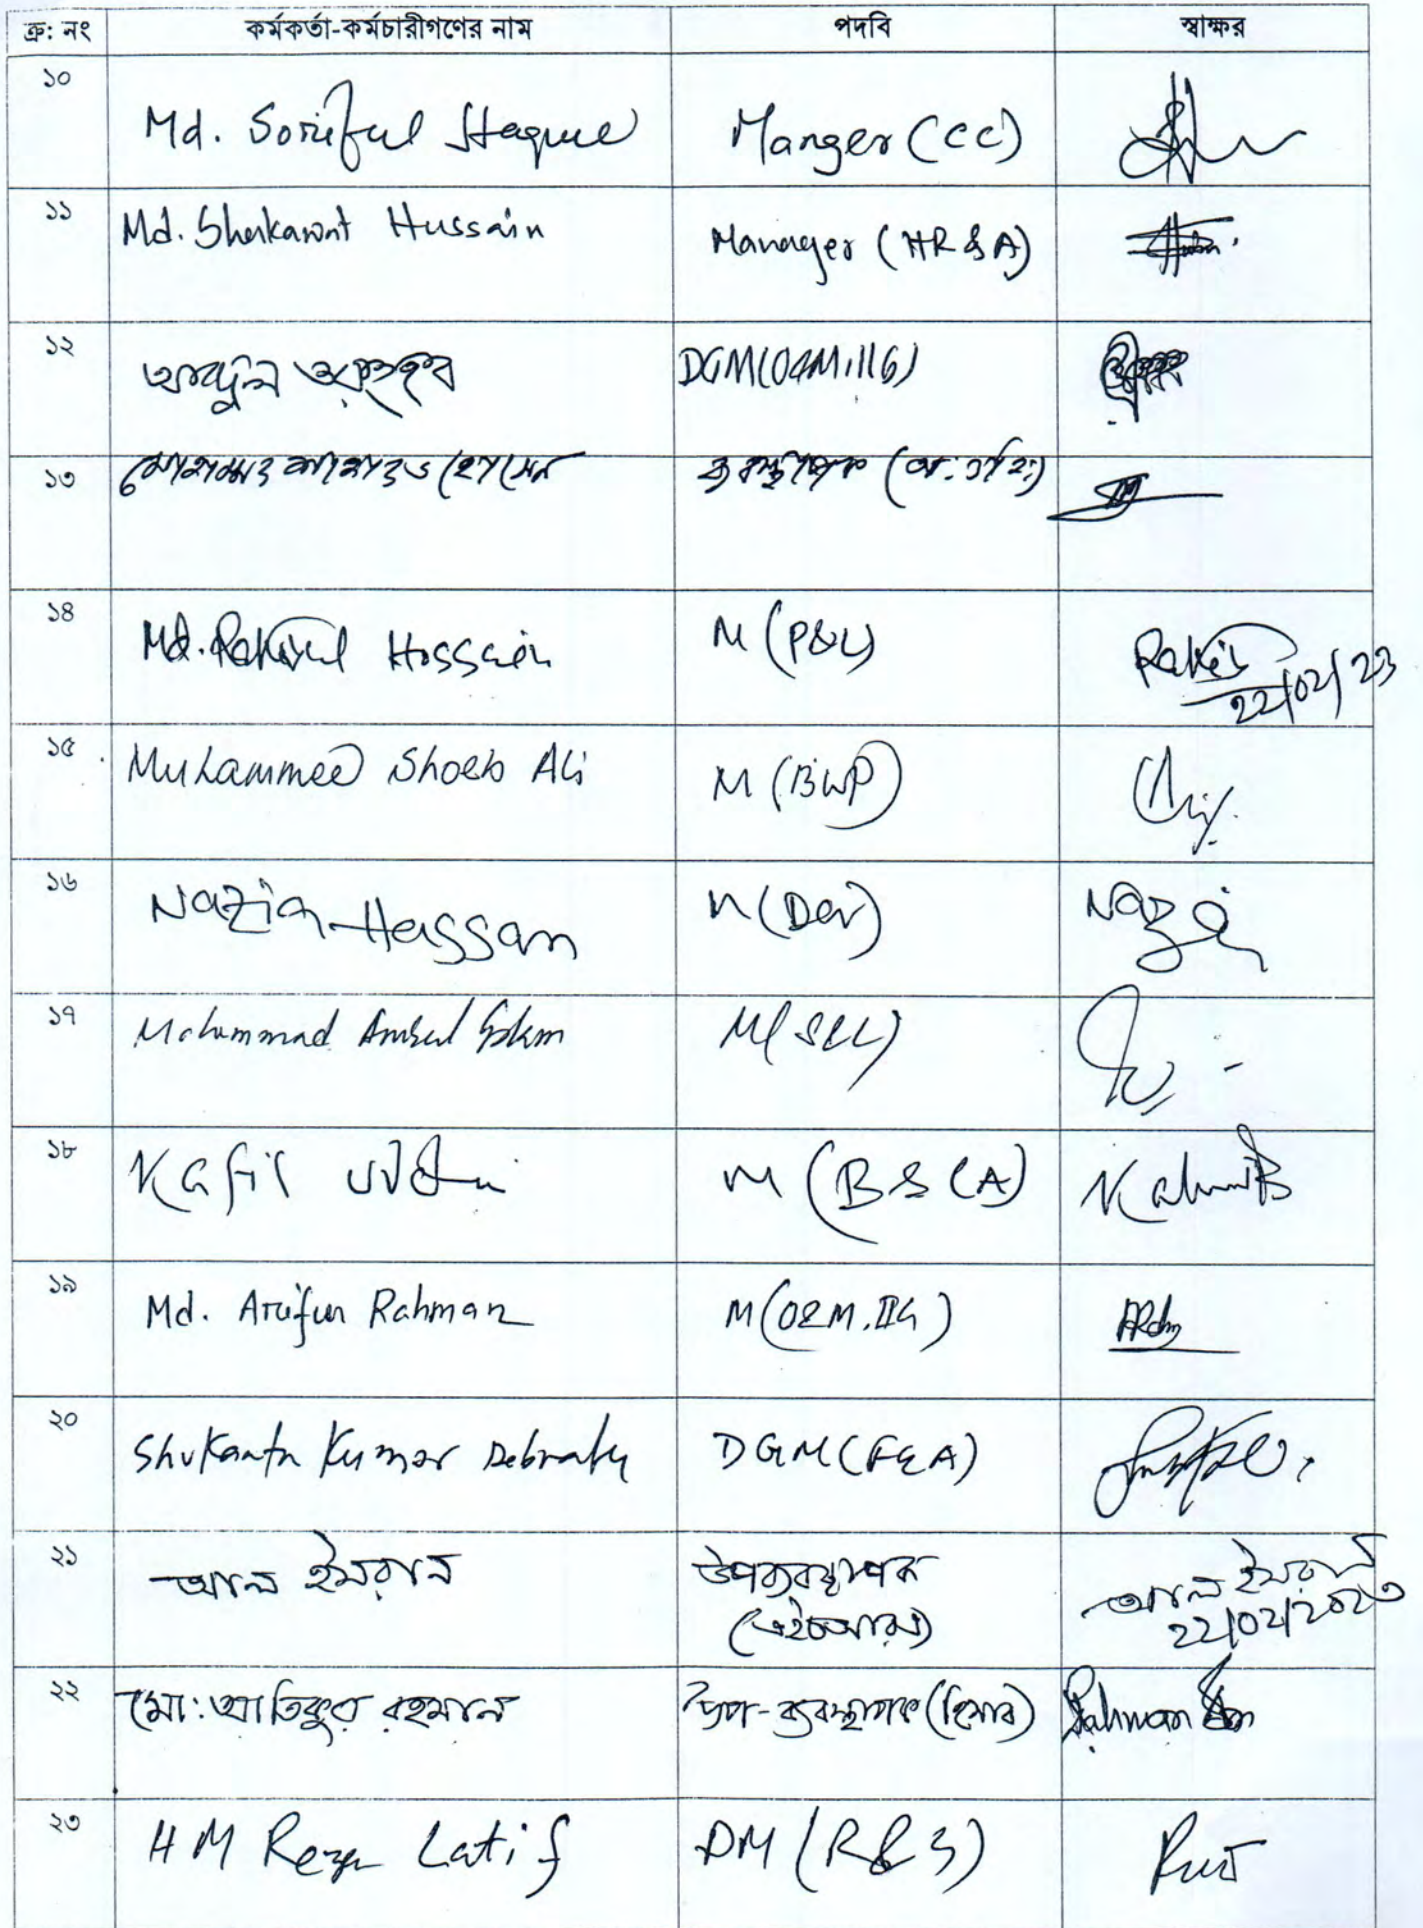 ক্র: নং কর্মকর্তা-কর্মচারীগণের নাম পদবি স্বাক্ষর
১০ Md. Soriful Haque Manger (CC)
১১ Md. Shakawat Hussain Manager (HR & A)
১২ আব্দুল ওয়াহহাব DGM(O&M, IIG)
১৩ হোসেন ব্যবস্থাপক
১৪ Md. Rakibul Hossain M (P&L) Rakib 22/02/23
১৫ Muhammed Shoeb Ali M (BWP)
১৬ Nazia Hassan M (Dev) Nazia
১৭ Mohammad Islam
১৮ Kafil Uddin M (B & CA)
১৯ Md. Arifur Rahman M (O&M, IIG)
২০ Shukanta Kumar Debnath DGM (F&A)
২১ আল ইমরান উপব্যবস্থাপক আল ইমরান
(এইচআরএ) 22/02/2023
২২ মো: আতিকুর রহমান উপ-ব্যবস্থাপক (হিসাব) Rahman
২৩ HM Reza Latif DM (R&S)